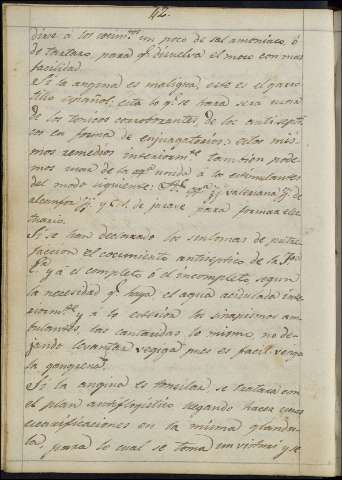 42.
dirse à los cocim.tos un poco de sal amoniaco, ò
de tartaro, para q.e disuelva el moco con mas
facilidad.
Si la angina es maligna, este es el garro-
tillo español, esta lo q.e se hara sera usar
de los topicos corroborantes, de los antisepti-
cos en forma de enjuagatorios: estos mis-
mos remedios interiorm.te tambien pode-
mos usar de la q.na unida à lo estimulantes
del modo siguiente: valeriana de
alcanfor y C. S. de jarave para formar elec
tuario.
Si se han declarado los sintomas de putre
faccion el cocimiento antiseptico de la
yà el completo ò el incompleto, segun
la necesidad q.e haya, el agua acidulada inte
riorm.te y à lo exterior los sinapismos am-
bulantes, las cantaridas lo mismo, no de-
jando levantar vegiga pues es facil venga
la gangrena.
Si la angina es tonsilar, se tratarà con
el plan antiflogistico llegando hacer unas
escarificaciones en la misma glandu-
la, para lo cual se toma un visturi y se